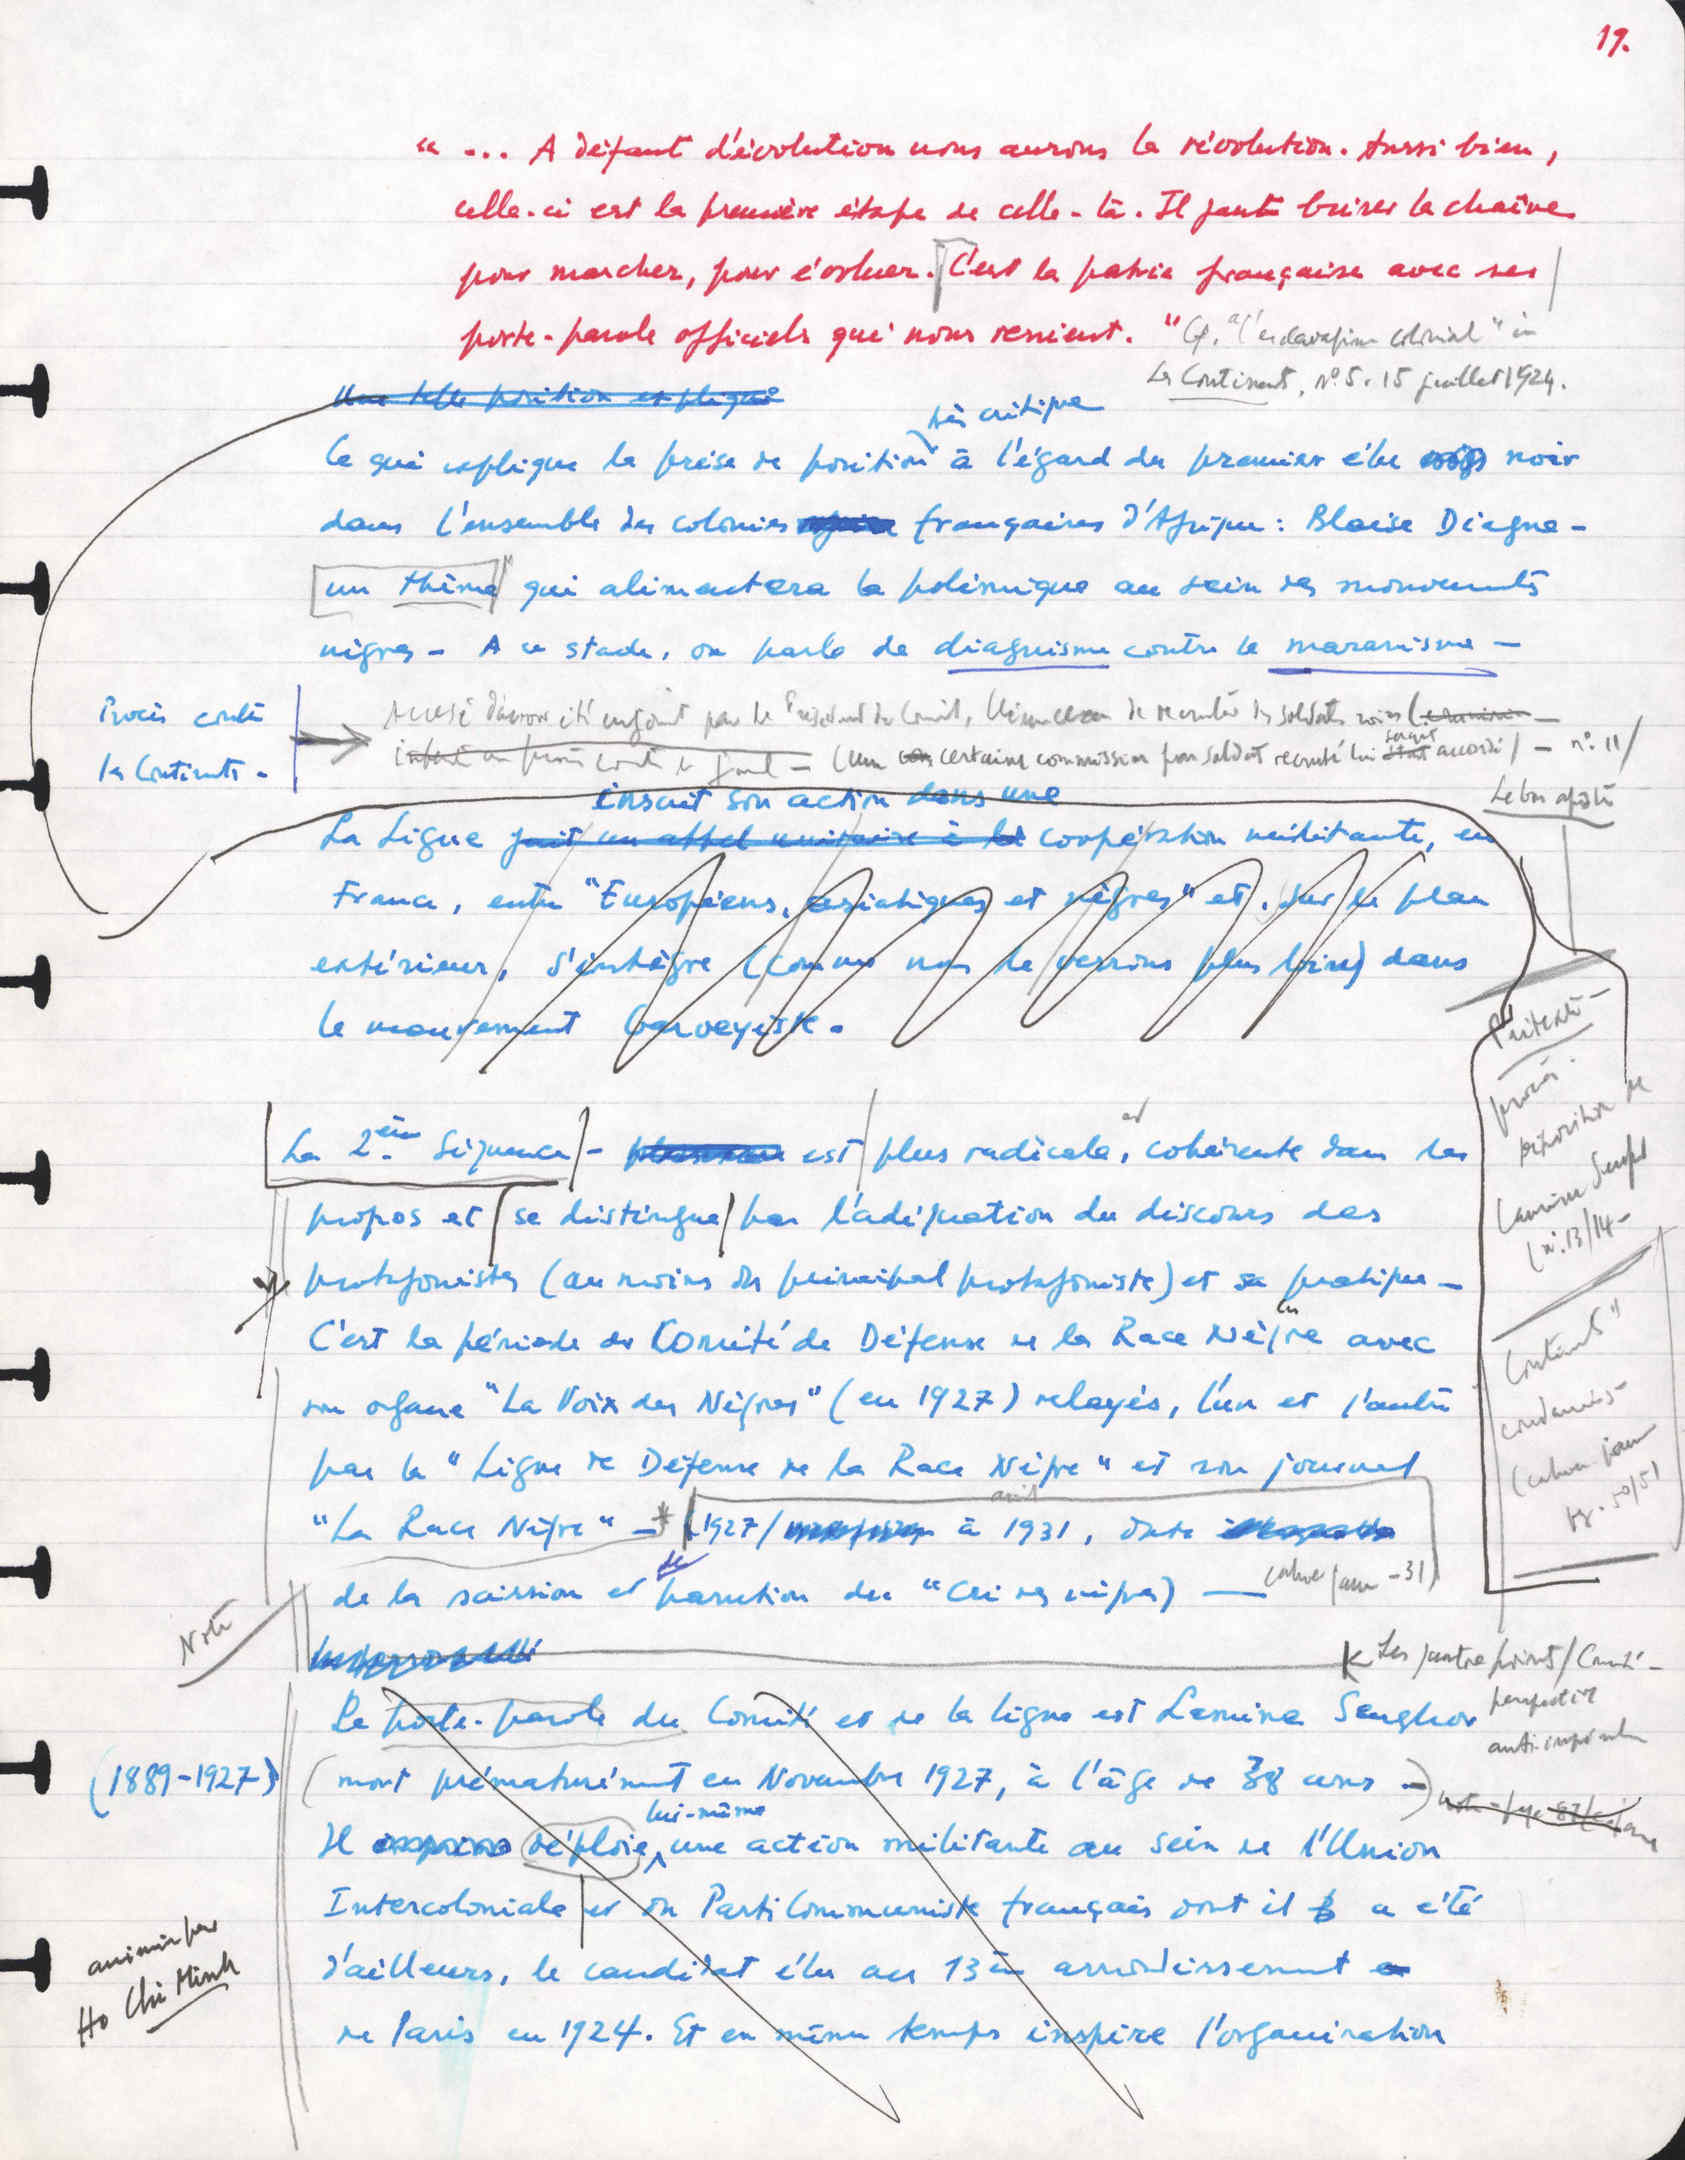 19.
" ... A défaut d'évolution nous aurons la révolution. Aussi bien,
celle-ci est la première étape de celle-là. Il faut briser la chaîne
pour marcher, pour évoluer. C'est la patrie française avec ses
porte-parole officiels qui nous renient. " Cf. "l'esclavagisme colonial" in
Les Continents, n° 5. 15 juillet 1924.
Une telle position explique
très critique
Ce qui explique la prise de position à l'égard du premier élu noir
dans l'ensemble des colonies françaises d'Afrique : Blaise Diagne -
un thème qui alimentera la polémique au sein des mouvements
nègres - A ce stade, on parle de diagnisme contre le maranisme -
Procès contre
les Continents -
Accusé d'avoir été enjoint par le Président du Conseil, Clémenceau de recruter des soldats noirs
(une certaine commission par soldat recruté lui serait accordé) - n° 11/
Le bon apôtre
inscrit son action dans une
La Ligue fait un appel unitaire à la coopération militante, en
France, entre "Européens, asiatiques et nègres" et, sur le plan
extérieur, s'intègre (comme nous le verrons plus loin) dans
le mouvement Garveyiste.
procès -
déposition de
Lamine Senghor
(n° 13/14 -
La 2ème Séquence - est plus radicale, et cohérente dans les
propos et se distingue par l'adéquation du discours des
protagonistes (au moins du principal protagoniste) et sa pratique -
C'est la période du Comité de Défense de la Race Nègre avec
son organe "La Voix des Nègres" (en 1927) relayés, l'un et l'autre
par la "Ligue de Défense de la Race Nègre" et son journal
avril
"La Race Nègre" - * (1927/ à 1931, date
de la scission et de parution du "Cri des nègres) -
Continents"
condamnés
pp. 50/51
Note
Le porte-parole du Comité et de la Ligue est Lamine Senghor
perspective
(1889-1927)
(mort prématurément en Novembre 1927, à l'âge de 38 ans -)
lui-même
Il déploie une action militante au sein de l'Union
Intercoloniale et du Parti Communiste français dont il a été
d'ailleurs, le candidat élu au 13ème arrondissement
de Paris en 1924. Et en même temps inspire l'organisation
animée par
Ho Chi Minh